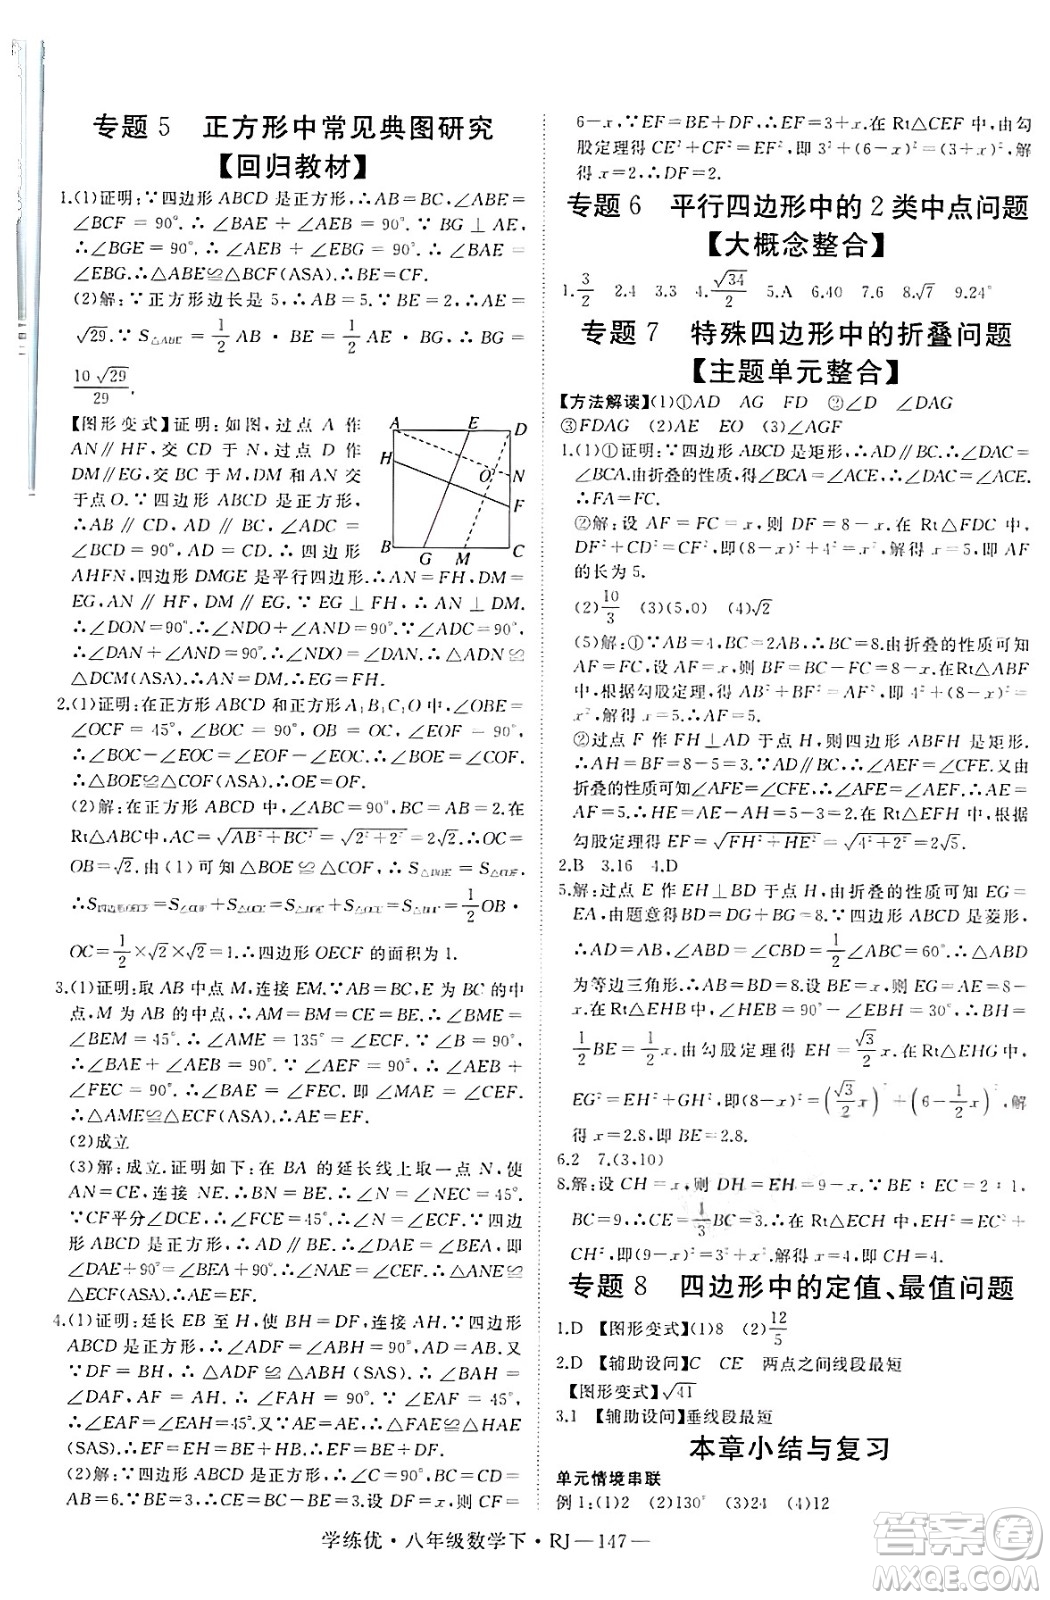 专题5　正方形中常见典图研究
【回归教材】
1.(1)证明:∵四边形ABCD是正方形∴AB=BC,∠ABE=
∠BCF=90°.∴∠BAE+∠AEB=90°.∵BG⊥AE,
∴∠BGE=90°.∴∠AEB+∠EBG=90°.∴∠BAE=
∠EBG.∴△ABE≌△BCF(ASA).∴BE=CF.
(2)解:∵正方形边长是5,∴AB=5.∵BE=2,∴AE=
√29.∵S△ABE=1/2 AB·BE=1/2 AE·BG,∴BG=AB·BE/AE=
10√29/29.
【图形变式】证明:如图,过点A作
AN∥HF,交CD于点N,过点D作
DM∥EG,交BC于点M,交AN
于点O.∵四边形ABCD是正方形,
∴AB∥CD,AD∥BC,∠ADC=
∠C=90°,AD=CD.∴四边形
AHFN,四边形DMGE是平行四边形.∴AN=FH,DM=
EG,AN∥HF,DM∥GE.∵EG⊥FH,∴AN⊥DM.
∴∠DON=90°.∴∠NDO+∠AND=90°.∵∠ADC=90°,
∴∠DAN+∠AND=90°.∴∠NDO=∠DAN.∴△ADN≌
△DCM(ASA).∴AN=DM.∴EG=FH.
2.(1)证明:在正方形ABCD和正方形A₁B₁C₁O中,∠OBE=
∠OCF=45°,∠BOC=90°,OB=OC,∠EOF=90°.
∴∠BOC-∠EOC=∠EOF-∠EOC.∴∠BOE=∠COF.
∴△BOE≌△COF(ASA).∴OE=OF.
(2)解:在正方形ABCD中,∠ABC=90°,AB=BC=2.在
Rt△ABC中,AC=√(AB²+BC²)=√(2²+2²)=2√2.∴OC=
OB=√2.由(1)可知△BOE≌△COF,∴S△BOE=S△COF.
∴S四边形OECF=S△COF+S△EOC=S△BOE+S△EOC=S△BOC=1/2 OB·
OC=1/2×√2×√2=1.∴四边形OECF的面积为1.
3.(1)证明:取AB中点M,连接EM.∵AB=BC,E为BC的中
点,M为AB的中点,∴AM=BM=CE=BE.∴∠BME=
∠BEM=45°.∴∠AME=135°=∠ECF.∵∠B=90°,
∴∠BAE+∠AEB=90°.∵∠AEF=90°,∴∠AEB+
∠FEC=90°.∴∠BAE=∠FEC.∴∠BAE=∠FEC.
∴△AME≌△ECF(ASA).∴AE=EF.
(2)成立
(3)解:成立.证明如下:在BA的延长线上取一点N,使
AN=CE,连接NE.∵AB=BC,AN=CE,∴BN=BE.
∵CF平分∠DCE,∴∠N=∠FCE=45°.∵四边
形ABCD是正方形,∴AD∥BE.∴∠DAE=∠BEA.
∵∠NAD=∠AEF=90°,∴∠NAE=∠CEF.∴△ANE≌
△ECF(ASA).∴AE=EF.
4.(1)证明:延长EB至H,使BH=DF,连接AH.∵四边形
ABCD是正方形,∴∠ABH=∠D=90°,AB=AD.又
∵DF=BH,∴△ADF≌△ABH(SAS).∴∠BAH=
∠DAF,AF=AH.∴∠FAH=90°.∵∠EAF=45°,
∴∠EAF=∠EAH=45°.又∵AE=AE,∴△FAE≌△HAE
(SAS).∴EF=HE=BE+HB.∴EF=BE+DF.
(2)解:∵四边形ABCD是正方形,∴CD=BC=
AB=6.∵BE=3,∴CE=3.设DF=x,则CF=
6-x,∵EF=BE+DF,∴EF=3+x.在Rt△CEF中,由勾
股定理得CE²+CF²=EF²,即3²+(6-x)²=(3+x)²,解得
x=2,∴DF=2.
专题6　平行四边形中的2类中点问题
【大概念整合】
1.3/2　2.4　3.3　4.√34/2　5.A　6.40　7.6　8.√7　9.24°
专题7　特殊四边形中的折叠问题
【主题单元整合】
【方法解读】(1)①AD　AG　FD　②∠D　∠DAG
③FDAG　(2)AE　EO　(3)∠AGF
1.(1)①证明:∵四边形ABCD是矩形,∴AD∥BC.∴∠DAC=
∠BCA.由折叠的性质,得∠BCA=∠ACE.∴∠DAC=∠ACE.
∴FA=FC.
②解:设AF=FC=x,则DF=8-x,在Rt△FDC中,
DF²+CD²=CF²,即(8-x)²+4²=x²,解得x=5,即AF
的长为5.
(2)10/3　(3)(5,0)　(4)√2
(5)解:①∵AB=4,BC=2AB,∴BC=8.由折叠的性质可知
AF=FC.设AF=FC=x,则BF=BC-FC=8-x.在Rt△ABF
中,根据勾股定理,得AB²+BF²=AF²,即4²+(8-x)²=
x²,解得x=5,∴AF=5.
②过点F作FH⊥AD于点H,则四边形ABFH是矩形.
∴AH=BF=8-5=3.∵AD∥BC,∴∠AEF=∠CFE.又由
折叠的性质可知∠AFE=∠CFE,∴∠AEF=∠AFE.∴AE=
AF=5.∴HE=AE-AH=5-3=2.在Rt△EFH中,根据
勾股定理得EF=√(FH²+HE²)=√(4²+2²)=2√5.
2.B　3.16　4.D
5.解:过点E作EH⊥BD于点H,由折叠的性质可知EG=
EA,由题意得BD=DG+BG=8.∵四边形ABCD是菱形,
∴AD=AB,∠ABD=∠CBD=1/2∠ABC=60°.∴△ABD
为等边三角形.∴AB=BD=8.设BE=x,则EG=AE=8-
x.在Rt△EHB中,∠BEH=90°-∠EBH=30°,∴BH=
1/2 BE=1/2 x.由勾股定理得EH=√3/2 x,在Rt△EHG中,
EG²=EH²+GH²,即(8-x)²=(√3/2 x)²+(6-1/2 x)²,解
得x=2.8,即BE=2.8.
6.2　7.(3,10)
8.解:设CH=x,则DH=EH=9-x.∵BE∶EC=2∶1,
BC=9,∴CE=1/3 BC=3.∴在Rt△ECH中,EH²=EC²+
CH²,即(9-x)²=3²+x²,解得x=4,即CH=4.
专题8　四边形中的定值、最值问题
1.D　【图形变式】(1)8　(2)12/5
2.D　【辅助设问】C　CE　两点之间线段最短
【图形变式】√41
3.1　【辅助设问】垂线段最短
本章小结与复习
单元情境串联
例1:(1)2　(2)130°　(3)24　(4)12
A
E
D
H
O
N
F
B
G
M
C
学练优·八年级数学下·RJ—147—
答案圈
MXQE.COM